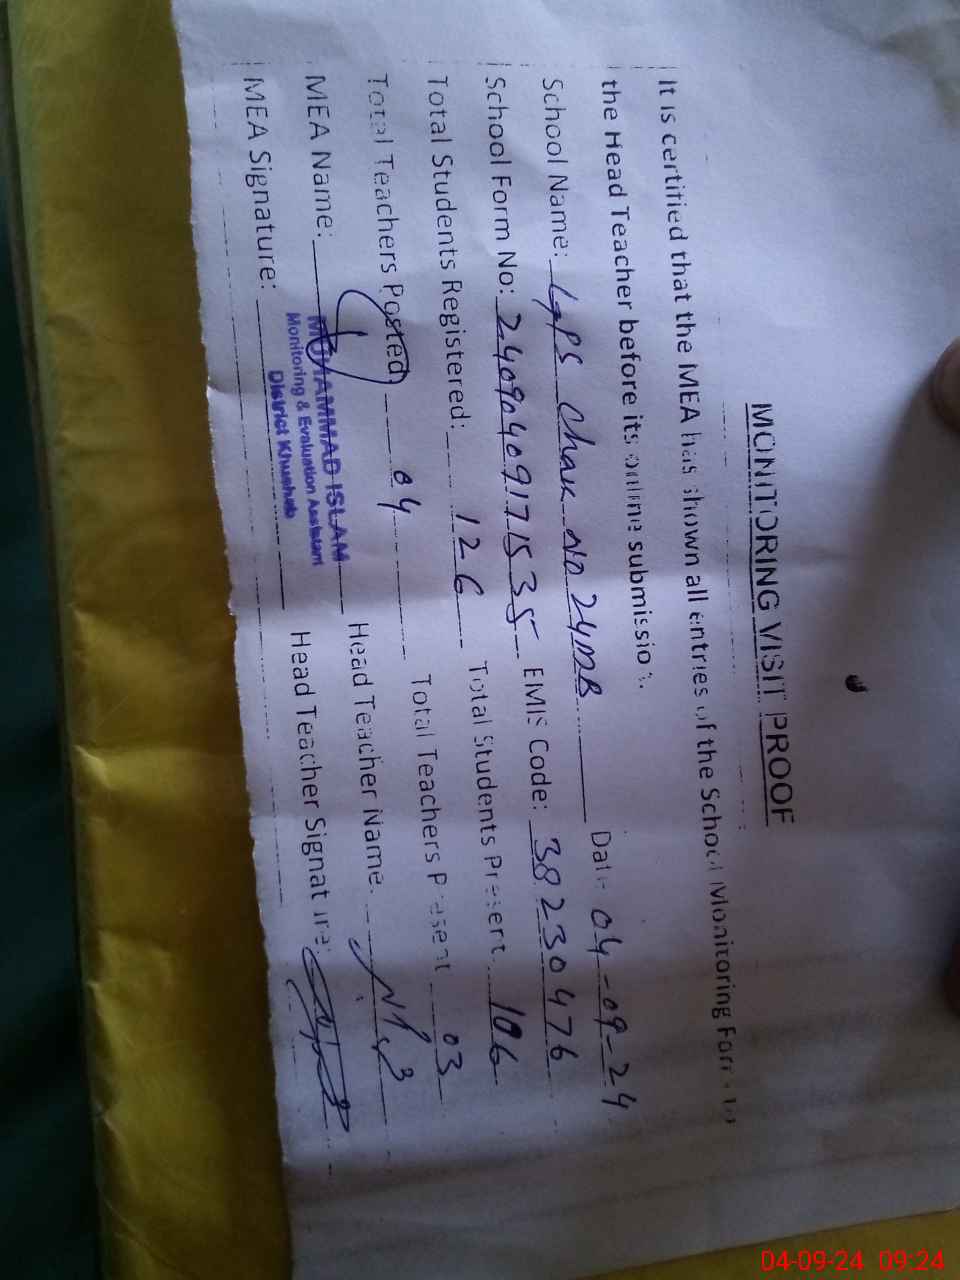 MONITORING VISIT PROOF
It is certified that the MEA has shown all entries of the School Monitoring Form to
the Head Teacher before its online submission.
School Name: GPS Chak No 24MB Date 04-09-24
School Form No: 24090409171535 EMIS Code: 38230476
Total Students Registered: 126 Total Students Present 106
Total Teachers Posted 04 Total Teachers Present 03
MEA Name: Head Teacher Name.
MUHAMMAD ISLAM
Monitoring & Evaluation Assistant
District Khushab
MEA Signature: Head Teacher Signature:
04-09-24 09:24